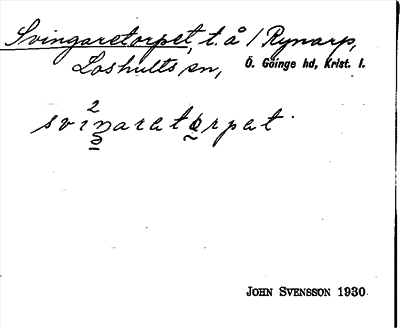 Svingaretorpet, t. å / Rynarp,
Loshults sn, Ö. Göinge hd, Krist. l.
2
svinaratorpat
JOHN SVENSSON 1930